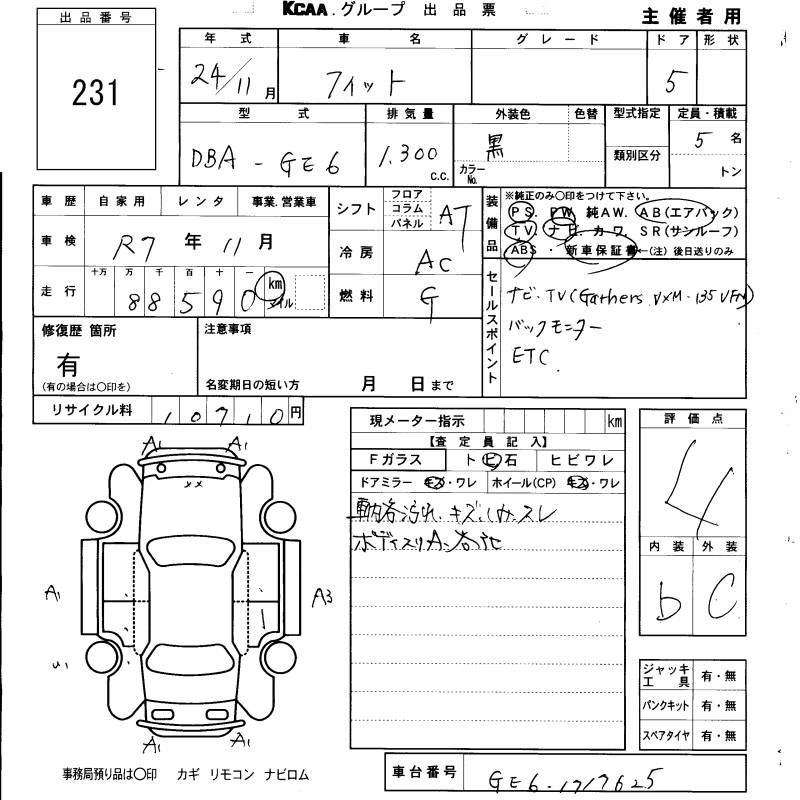 KCAA.グループ 出品票
主催者用
出品番号
231
年式 車名 グレード ドア 形状
24/11月 フィット 5
型式 排気量 外装色 色替 型式指定 定員・積載
DBA-GE6 1.300 c.c. 黒 カラーNo. 類別区分 5名
トン
車歴 自家用 レンタ 事業.営業車
車検 R7年11月
走行 十万 万 千 百 十 一 km マイル
88590
シフト フロア コラム パネル AT
冷房 AC
燃料 G
装備品 ※純正のみ○印をつけて下さい。
PS. PW. 純AW. AB(エアバック)
TV. ナビ. カワ. SR(サンルーフ)
ABS・新車保証書←(注)後日送りのみ
セールスポイント
ナビ・TV(Gathers VXM-135VFN)
バックモニター
ETC
修復歴 箇所
有
(有の場合は○印を)
注意事項
名変期日の短い方 月 日まで
リサイクル料 10710円
現メーター指示 km
【査定員記入】
Fガラス トビ石 ヒビワレ
ドアミラー キズ・ワレ ホイール(CP) キズ・ワレ
車内各汚れ.キズ.しみ.スレ
ボディスリA.各他
評価点
4
内装 外装
b C
A1 A1
A1 A3
U1
A1 A1
ジャッキ工具 有・無
パンクキット 有・無
スペアタイヤ 有・無
事務局預り品は○印 カギ リモコン ナビロム
車台番号 GE6-1717625